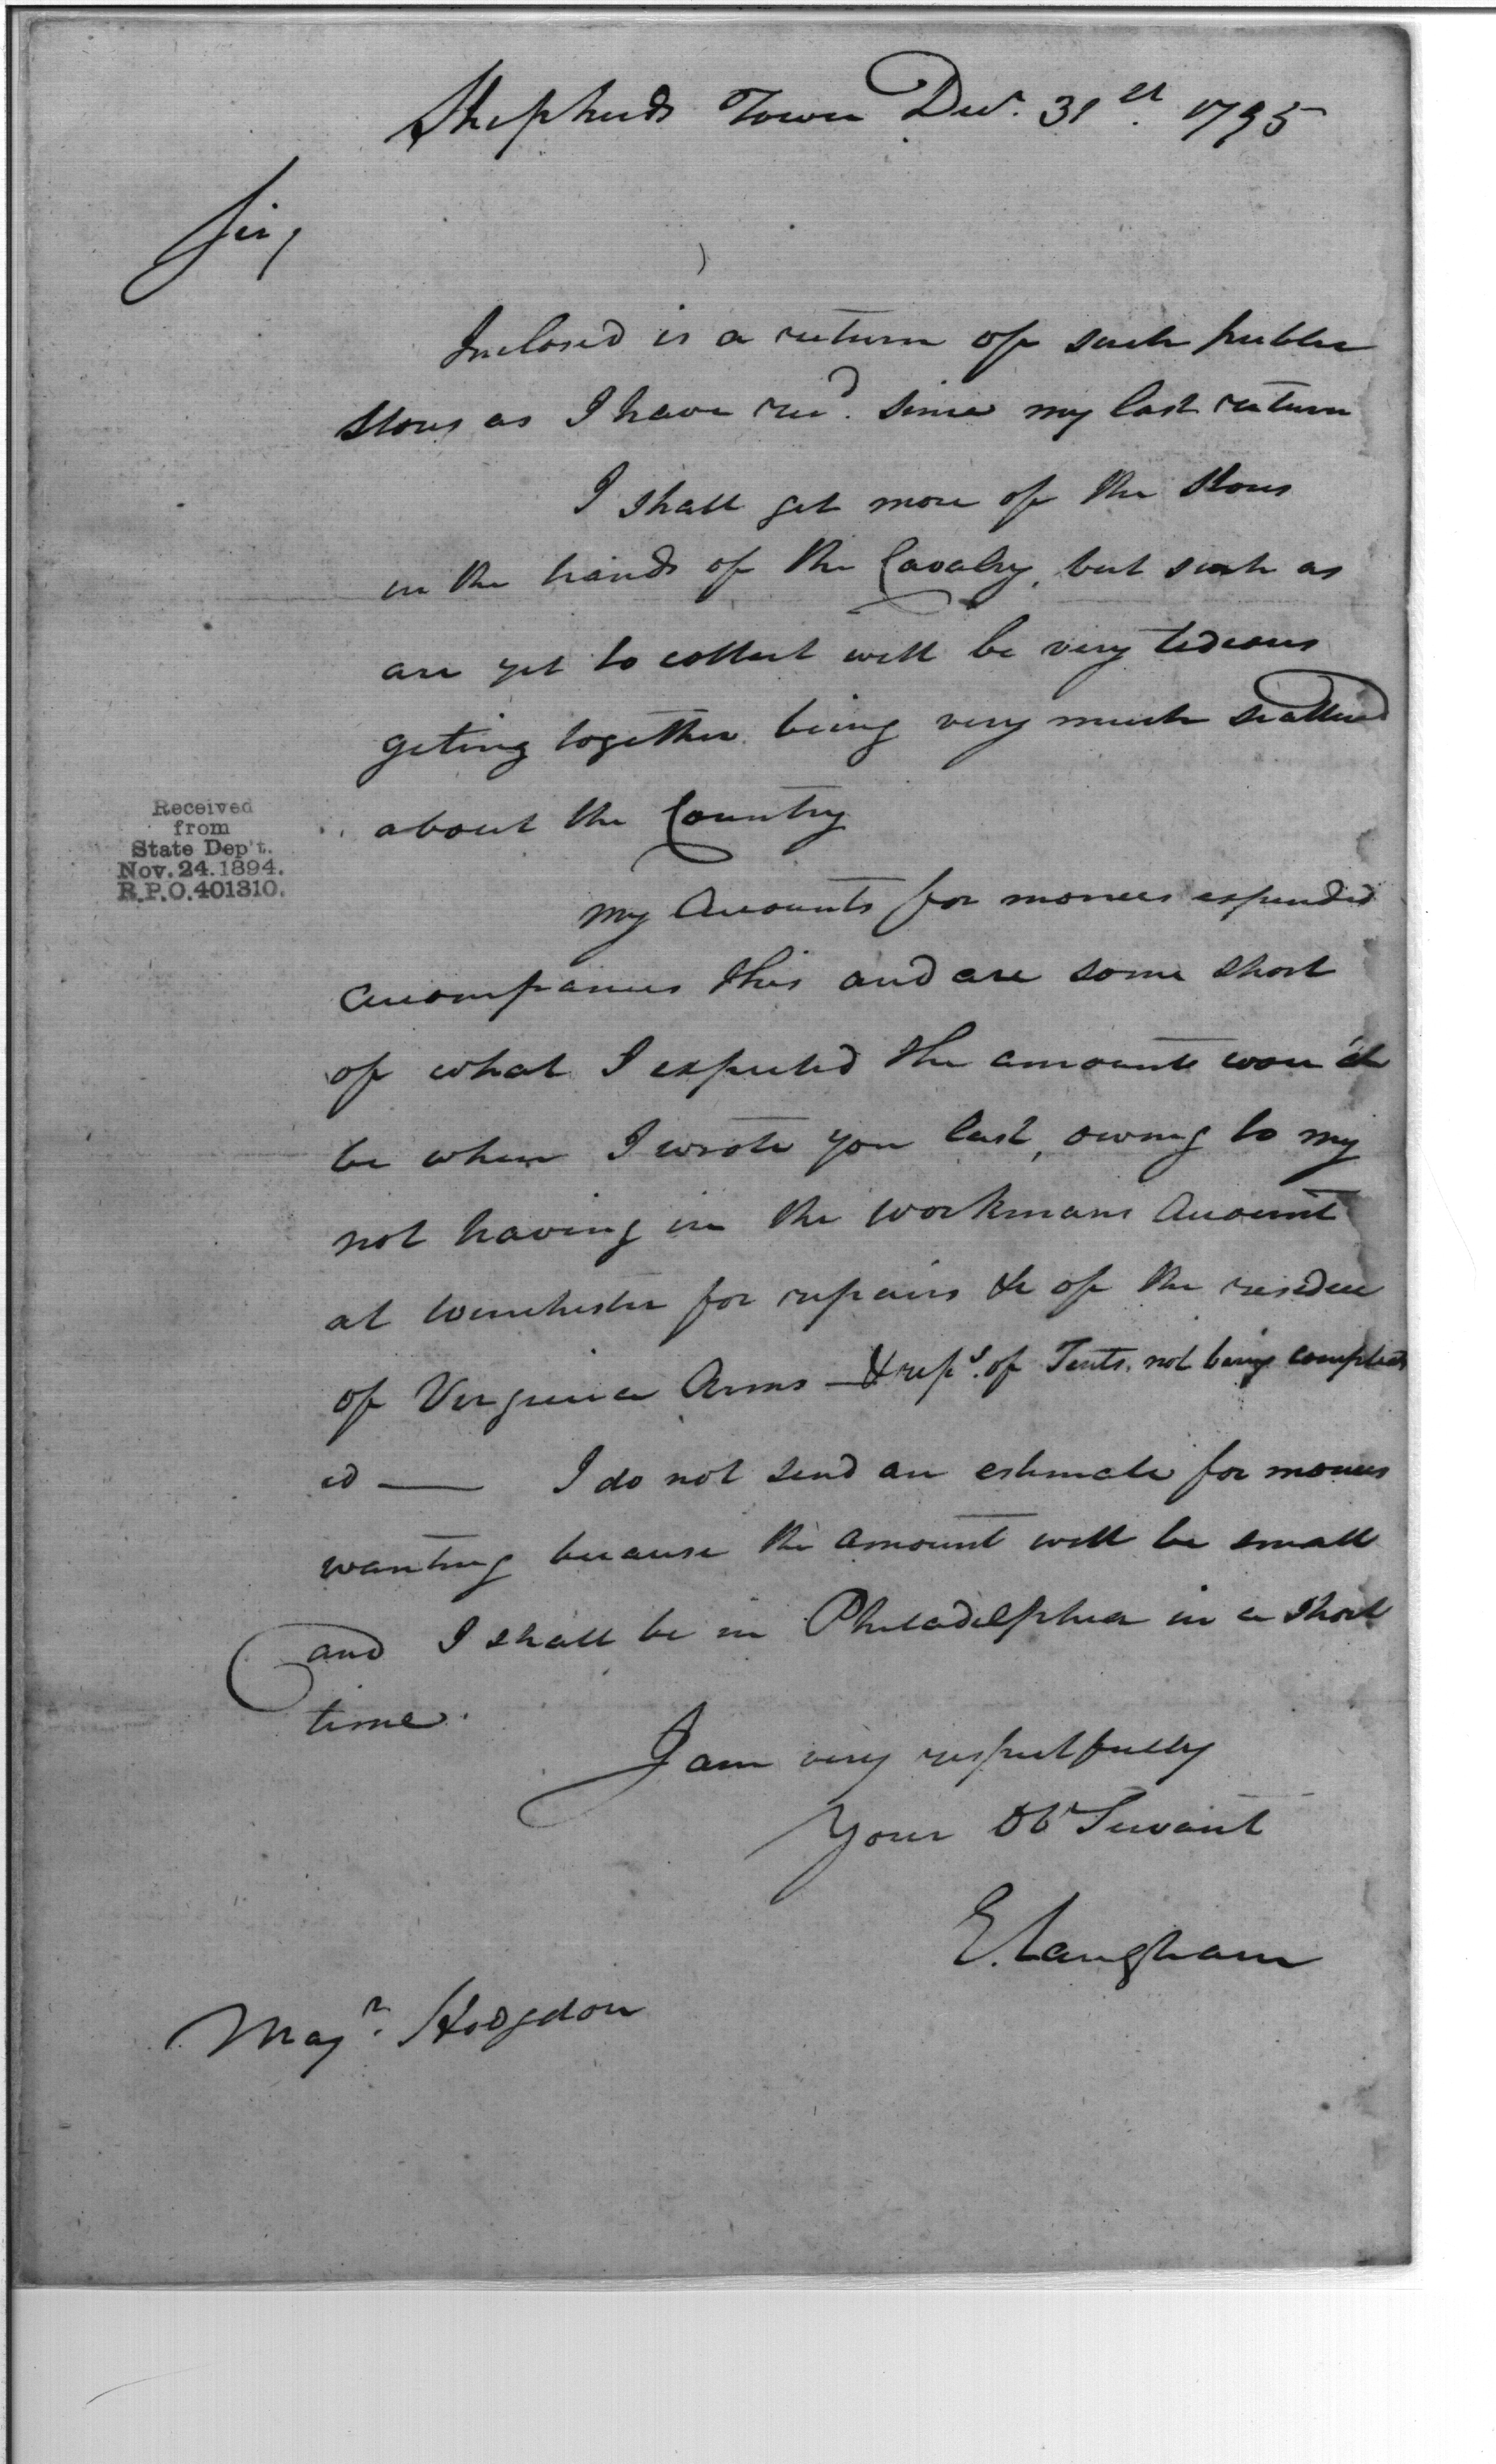 Shepherds Town Decr. 31st. 1795
Sir,
Inclosed is a return of such public
stores as I have recd. since my last return
I shall get more of the stores
in the hands of the Cavalry, but such as
are yet to collect will be very tedeous
geting together being very much scattered
about the Country
Received
from
State Dep't.
Nov. 24. 1894.
R.P.O. 401310.
my Accounts for monies expended
accompanies this and are some short
of what I expected the amounts wou'd
be when I wrote you last, owing to my
not having in the workmans Account
at Winchester for repairs &c of the residue
of Virginia Arms — & reps. of Tents. not being complet
ed — I do not send an estimate for monies
wanting because the amount will be small
and I shall be in Philadelphia in a short
time.
I am very respectfully
Your Obt Servant
E. Langham
Majr. Hodgdon